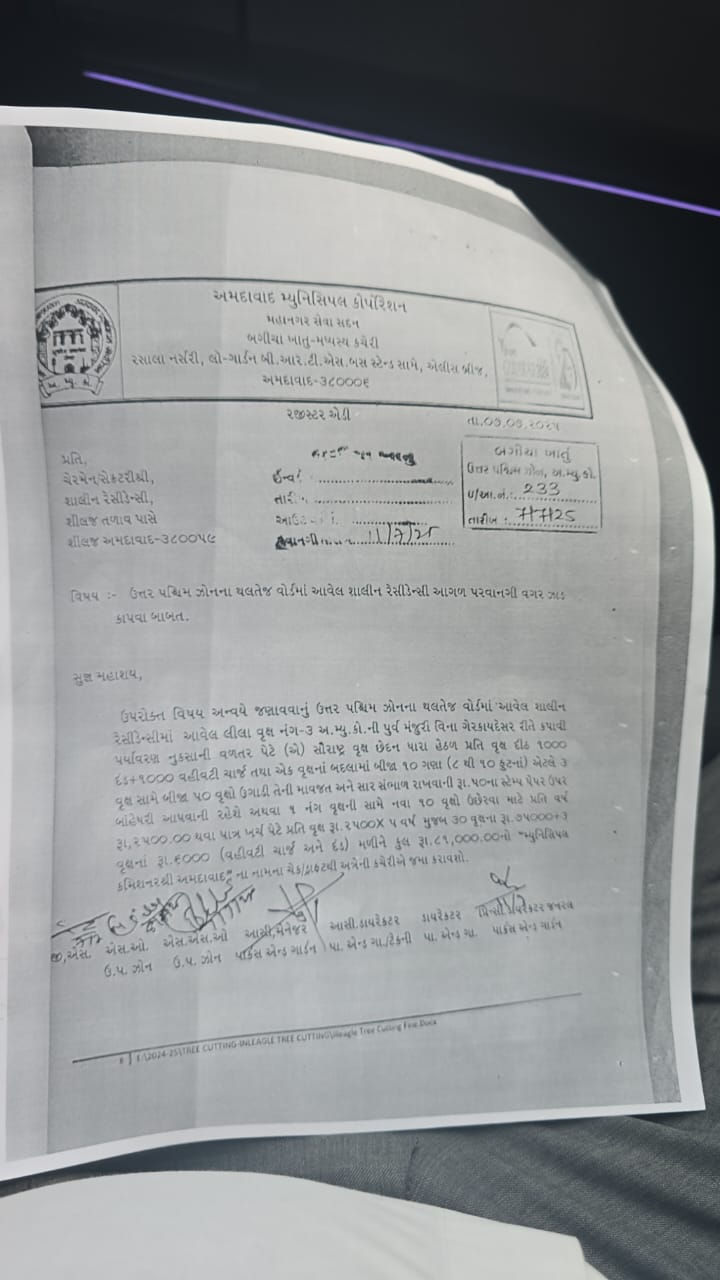 અમદાવાદ મ્યુનિસિપલ કોર્પોરેશન
મહાનગર સેવા સદન
બગીચા ખાતુ-મધ્યસ્થ કચેરી
રસાલા નર્સરી, લો-ગાર્ડન બી.આર.ટી.એસ.બસ સ્ટેન્ડ સામે, એલીસ બ્રીજ,
અમદાવાદ-૩૮૦૦૦૬
રજીસ્ટર એડી
તા.૦૭.૦૭.૨૦૨૫
પ્રતિ,
ચેરમેન/સેક્રટરીશ્રી,
શાલીન રેસીડેન્સી,
શીલજ તળાવ પાસે
શીલજ અમદાવાદ-૩૮૦૦૫૯
ઈન્વર્ડ
તારીખ
આઉટ
રવાનગી 11/7/25
બગીચા ખાતું
ઉત્તર પશ્ચિમ ઝોન, અ.મ્યુ.કો.
ઇ/આ.નં.: 233
તારીખ : 7/7/25
વિષય :- ઉત્તર પશ્ચિમ ઝોનના થલતેજ વોર્ડમાં આવેલ શાલીન રેસીડેન્સી આગળ પરવાનગી વગર ઝાડ
કાપવા બાબત.
સુજ્ઞ મહાશય,
ઉપરોક્ત વિષય અન્વયે જણાવવાનું ઉત્તર પશ્ચિમ ઝોનના થલતેજ વોર્ડમાં આવેલ શાલીન
રેસીડેન્સીમાં આવેલ લીલા વૃક્ષ નંગ-૩ અ.મ્યુ.કો.ની પુર્વ મંજુરી વિના ગેરકાયદેસર રીતે કપાવી
પર્યાવરણ નુકસાની વળતર પેટે (એ) સૌરાષ્ટ્ર વૃક્ષ છેદન ધારા હેઠળ પ્રતિ વૃક્ષ દીઠ ૧૦૦૦
દંડ+૧૦૦૦ વહીવટી ચાર્જ તથા એક વૃક્ષનાં બદલામાં બીજા ૧૦ ગણા (૮ થી ૧૦ ફુટનાં) એટલે ૩
વૃક્ષ સામે બીજા ૫૦ વૃક્ષો ઉગાડી તેની માવજત અને સાર સંભાળ રાખવાની રૂા.૫૦ના સ્ટેમ્પ પેપર ઉપર
બાંહેધરી આપવાની રહેશે અથવા ૧ નંગ વૃક્ષની સામે નવા ૧૦ વૃક્ષો ઉછેરવા માટે પ્રતિ વર્ષ
રૂા,૨૫૦૦.૦૦ થવા પાત્ર ખર્ચ પેટે પ્રતિ વૃક્ષ રૂા.૨૫૦૦X ૫ વર્ષ મુજબ ૩૦ વૃક્ષના રૂા.૭૫૦૦૦+૩
વૃક્ષનાં રૂા.૬૦૦૦ (વહીવટી ચાર્જ અને દંડ) મળીને કુલ રૂા.૮૧,૦૦૦.૦૦નો "મ્યુનિસિપલ
કમિશનરશ્રી અમદાવાદ" ના નામના ચેક/ડ્રાફ્ટથી અત્રેની કચેરીએ જમા કરાવશો.
જી,એસ. એસ.ઓ. એસ.એસ.ઓ આસી.મેનેજર આસી.ડાયરેક્ટર ડાયરેક્ટર પ્રિન્સી.ડાયરેક્ટર જનરલ
ઉ.પ. ઝોન ઉ.પ. ઝોન પાર્ક્સ એન્ડ ગાર્ડન પા. એન્ડ ગા./ટેક્ની પા. એન્ડ ગા. પાર્કસ એન્ડ ગાર્ડન
8 | E:\2024-25\TREE CUTTING-INLEAGLE TREE CUTTING\Illeagle Tree Cutting Fine.Docx